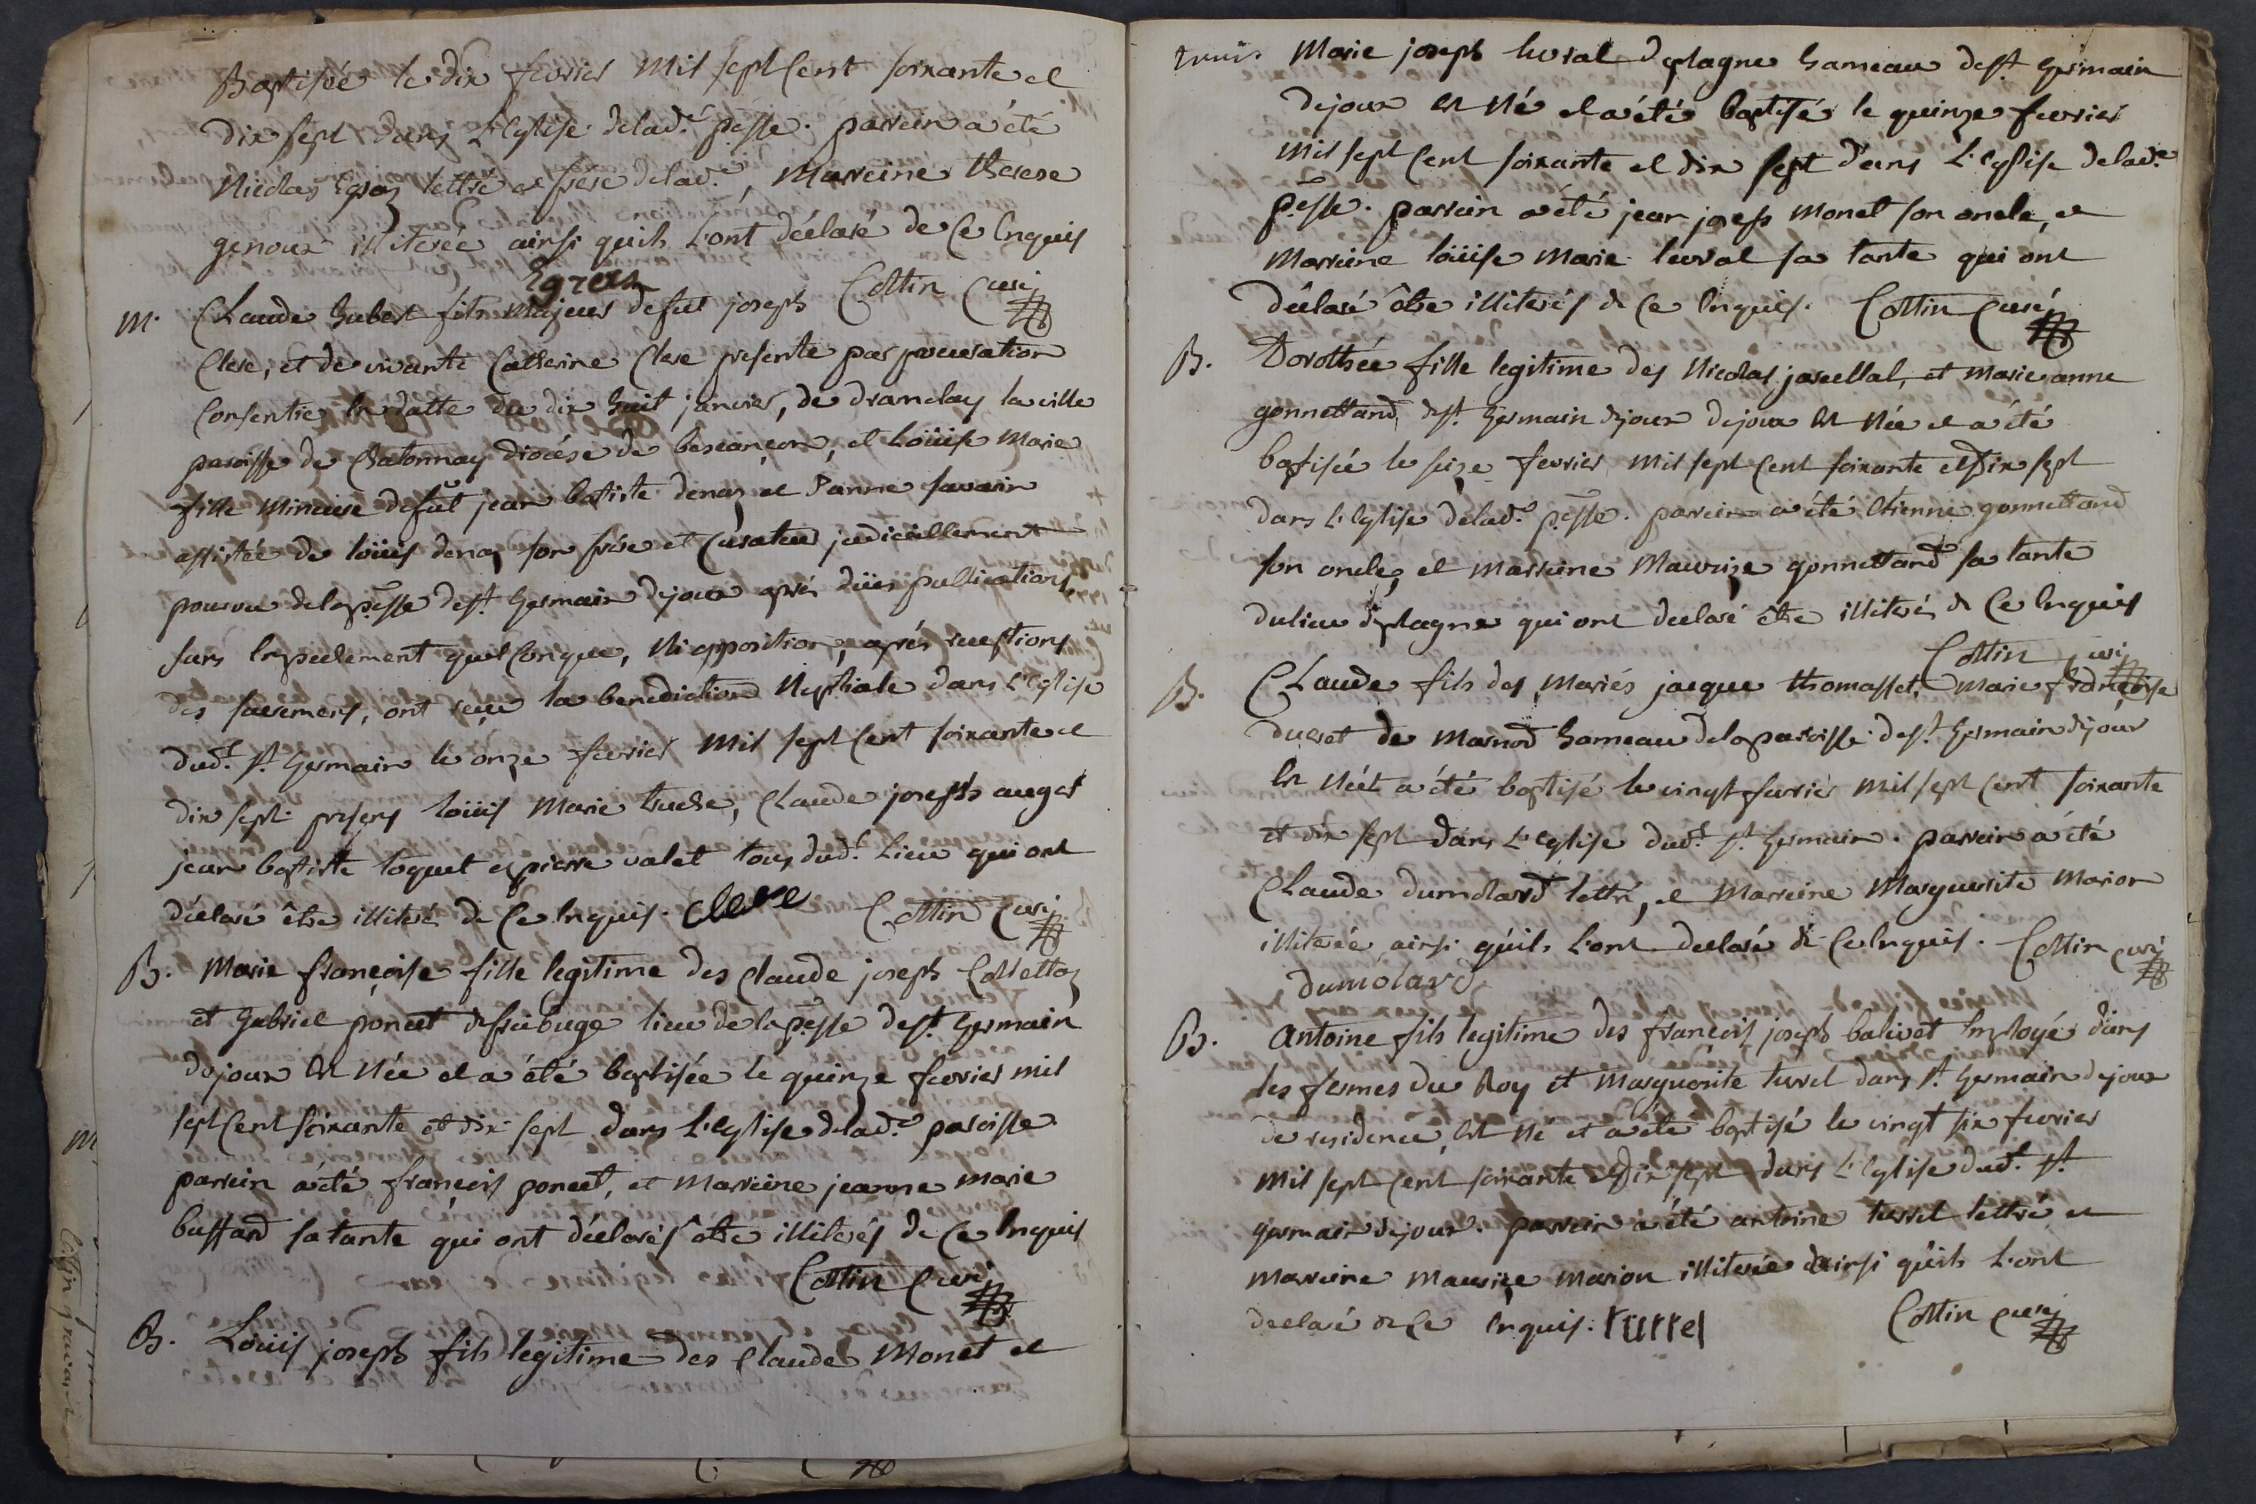 Baptisée le dix fevrier mil sept cent soixante et
dix sept dans L'eglise delad.e psse. parrein a été
Nicolas Egraz lettré et frére delad.e, Marreine therese
genoux illiterée ainsi quils L'ont déclaré de Ce Enquis
Egraz Cottin Curé
M. CLaude hubert fils Majeur defut joseph
Clere, et de vivante Catherine Clere presente par procuration
Consentie En datte du dix huit janvier, de dramelay la ville
paroisse de Chatonnay diocése de besançon, et Loüise Marie
fille Mineure defut jean batiste denaz et d'anne savarin
assistée de loüis denaz son frére et Curateur judiciellement
pourvu delapsse dest. Germain dejoux aprés düës publications
sans Enpeichement quelConque, Ni opposition, aprés receptions
des sacremens, ont reçu la benediction Nuptiale dans L'Eglise
dud.t st. Germain le onze fevrier Mil sept Cent soixante et
dix sept. presens loüis Marie truche, CLaude joseph auger
jean baptiste loquet et pierre valet tous dud.t Lieu qui ont
déclaré être illiteré de Ce Enquis. clere Cottin Curé
B. Marie françoise fille legitime des Claude joseph Collettaz
et Gabriel poncet defrébuge lieu de lapsse dest. Germain
dejoux Est Née et a été baptisée le quinze fevrier mil
sept Cent soixante et dix sept dans L'eglise delad.e paroisse
parrein a été françois poncet, et Marreine jeanne marie
buffard sa tante qui ont déclarés être illiterés de Ce Enquis
Cottin Curé
B. Loüis joseph fils legitime des Claude Monet et
Marie joseph levrat deplagne hameau dest. Germain
dejoux Est Né et a été baptisé le quinze fevrier
Mil sept Cent soixante et dix sept dans L'eglise delad.e
psse. parrein a été jean joseph Monet son oncle, et
Marreine loüise Marie levrat sa tante qui ont
déclaré être illiterés de Ce Enquis. Cottin Curé
B. Dorothée fille legitime des Nicolas jacellat, et Marie anne
gonnettand, dest. Germain dejoux dejoux Est Née et a été
baptisée le seize fevrier Mil sept Cent soixante et dix sept
dans L'Eglise delad.e psse. parrein a été Etienne gonnettand
son oncle, et marreine Maurize gonnettand sa tante
du lieu deplagne qui ont declaré être illiterés de Ce Enquis
Cottin Curé
B. CLaude fils des Mariés jacque thomasset, Marie françoise
ducret de Marnod hameau delaparoisse dest. Germain dejoux
Est Né et a été baptisé le vingt fevrier mil sept Cent soixante
et dix sept dans L'eglise dud.t st. Germain. parrein a été
CLaude dumolard lettré, et Marreine Marguerite Marion
illiterée ainsi quils L'ont declaré de Ce Enquis. Cottin Curé
dumolard
B. Antoine fils legitime des françois joseph balivet Employé dans
les fermes du Roy et Marguerite turrel dans st. Germain dejoux
de residence, Est Né et a été baptisé le vingt six fevrier
Mil sept Cent soixante et dix sept dans L'Eglise dud.t st.
germain dejoux. parrein a été antoine turrel lettré et
marreine Maurize Marion illiterée ainsi quils L'ont
declaré de Ce Enquis. turrel Cottin Curé